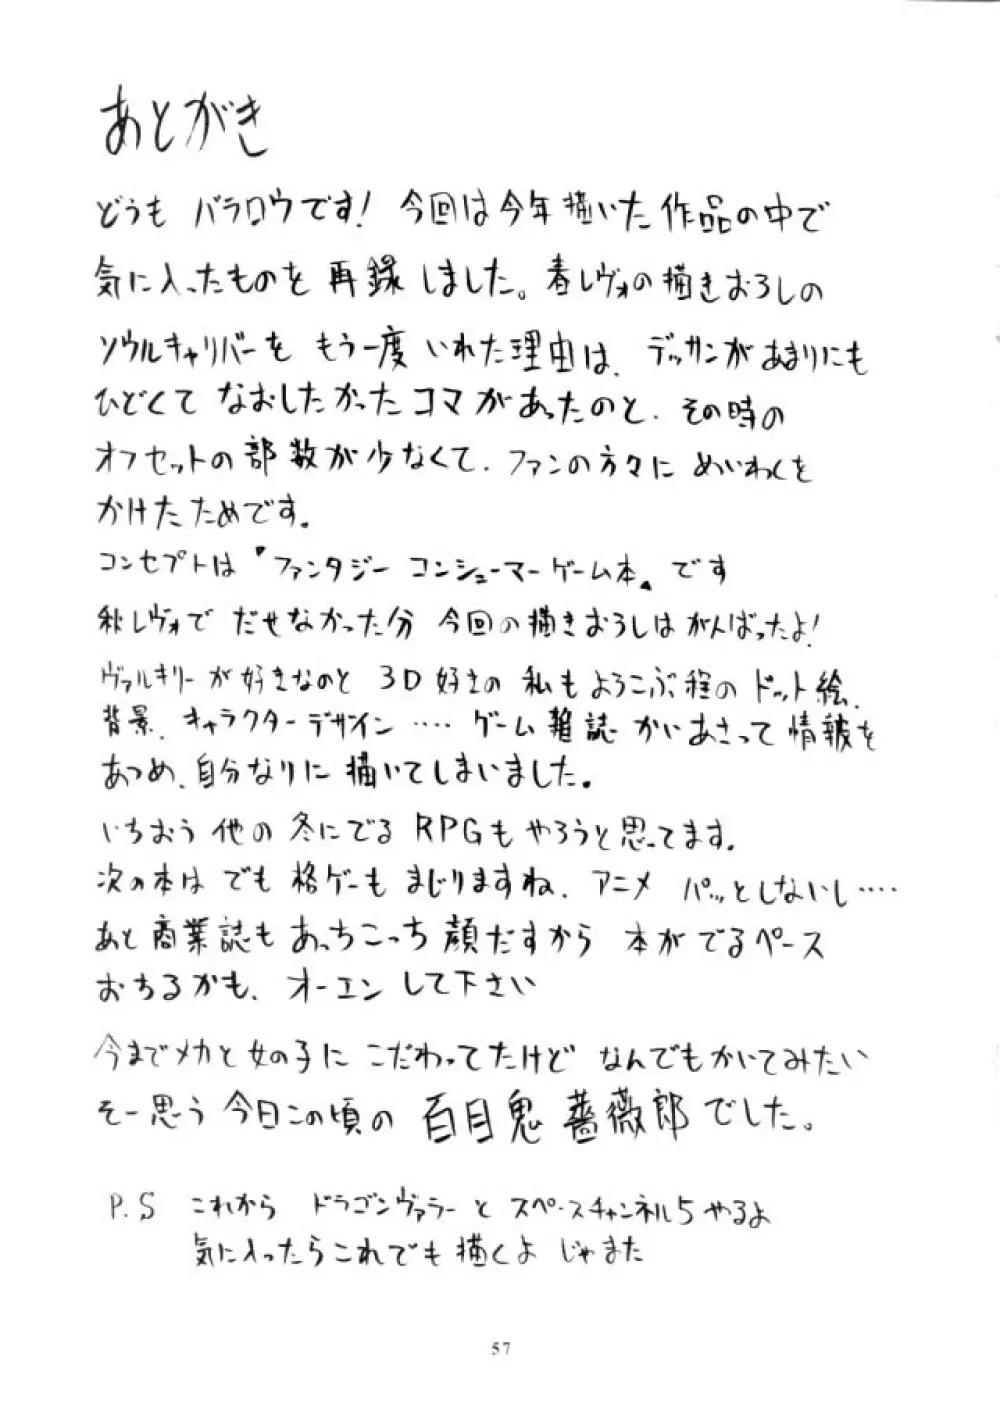 あとがき
どうも バラロウです! 今回は今年描いた作品の中で
気に入ったものを 再録しました。春レヴォの描きおろしの
ソウルキャリバーを もう一度 いれた理由は、デッサンがあまりにも
ひどくて なおしたかったコマがあったのと、その時の
オフセットの部数が少なくて、ファンの方々に めいわくを
かけたためです。
コンセプトは『ファンタジー コンシューマーゲーム本』です
秋レヴォで だせなかった分 今回の描きおろしは がんばったよ!
ヴァルキリーが好きなのと 3D好きの 私もよろこぶ程の ドット絵、
背景、キャラクターデザイン ‥‥ ゲーム雑誌 かいあさって 情報を
あつめ、自分なりに 描いてしまいました。
いちおう 他の 冬にでる RPGも やろうと思ってます。
次の本は でも 格ゲーも まじりますね、アニメ パッとしないし‥‥
あと 商業誌も あっちこっち 顔だすから 本が でるペース
おちるかも、オーエン して下さい
今までメカと 女の子に こだわってたけど なんでもかいてみたい
そー思う 今日この頃の 百目鬼 薔薇郎でした。
P.S これから ドラゴンヴァラーと スペースチャンネル5やるよ
気に入ったらこれでも 描くよ じゃまた
57